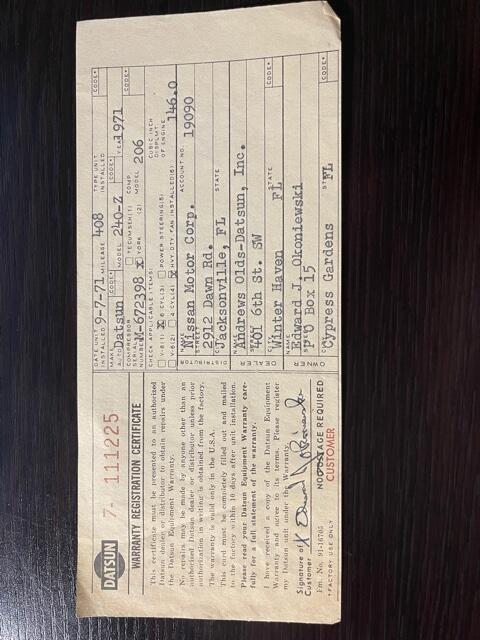 DATSUN
7- 111225
WARRANTY REGISTRATION CERTIFICATE
This certificate must be presented to an authorized
Datsun dealer or distributor to obtain repairs under
the Datsun Equipment Warranty.
No repairs may be made by anyone other than an
authorized Datsun dealer or distributor unless prior
authorization in writing is obtained from the factory.
The warranty is valid only in the U.S.A.
This card must be completely filled out and mailed
to the factory within 10 days after unit installation.
Please read your Datsun Equipment Warranty care-
fully for a full statement of the warranty.
I have received a copy of the Datsun Equipment
Warranty and agree to its terms. Please register
my Datsun unit under the Warranty.
Signature of
Customer X
Fm. No. 91-16705
NO POSTAGE REQUIRED
CUSTOMER
*FACTORY USE ONLY
DATE UNIT INSTALLED 9-7-71 MILEAGE 408 TYPE UNIT INSTALLED CODE*
MAKE AUTO Datsun CODE* MODEL 240-Z CODE* YEAR 1971 CODE*
COMPRESSOR TECUMSEH(1) COMP.
SERIAL NUMBER M-672398 X YORK (2) MODEL 206
CHECK APPLICABLE ITEM(S): CUBIC INCH DISPLMT OF ENGINE
V-8(1) X 6 CYL(3) POWER STEERING(5)
V-6(2) 4 CYL(4) X HVY. DTY FAN INSTALLED(6) 146.0
NAME Nissan Motor Corp. ACCOUNT NO. 19090
STREET 5912 Dawn Rd.
Jacksonville, FL STATE
DISTRIBUTOR
NAME Andrews Olds-Datsun, Inc.
401 6th St. SW
CITY Winter Haven STATE FL
DEALER
NAME Edward J. Okoniewski
P O Box 15
Cypress Gardens FL
OWNER CODE*